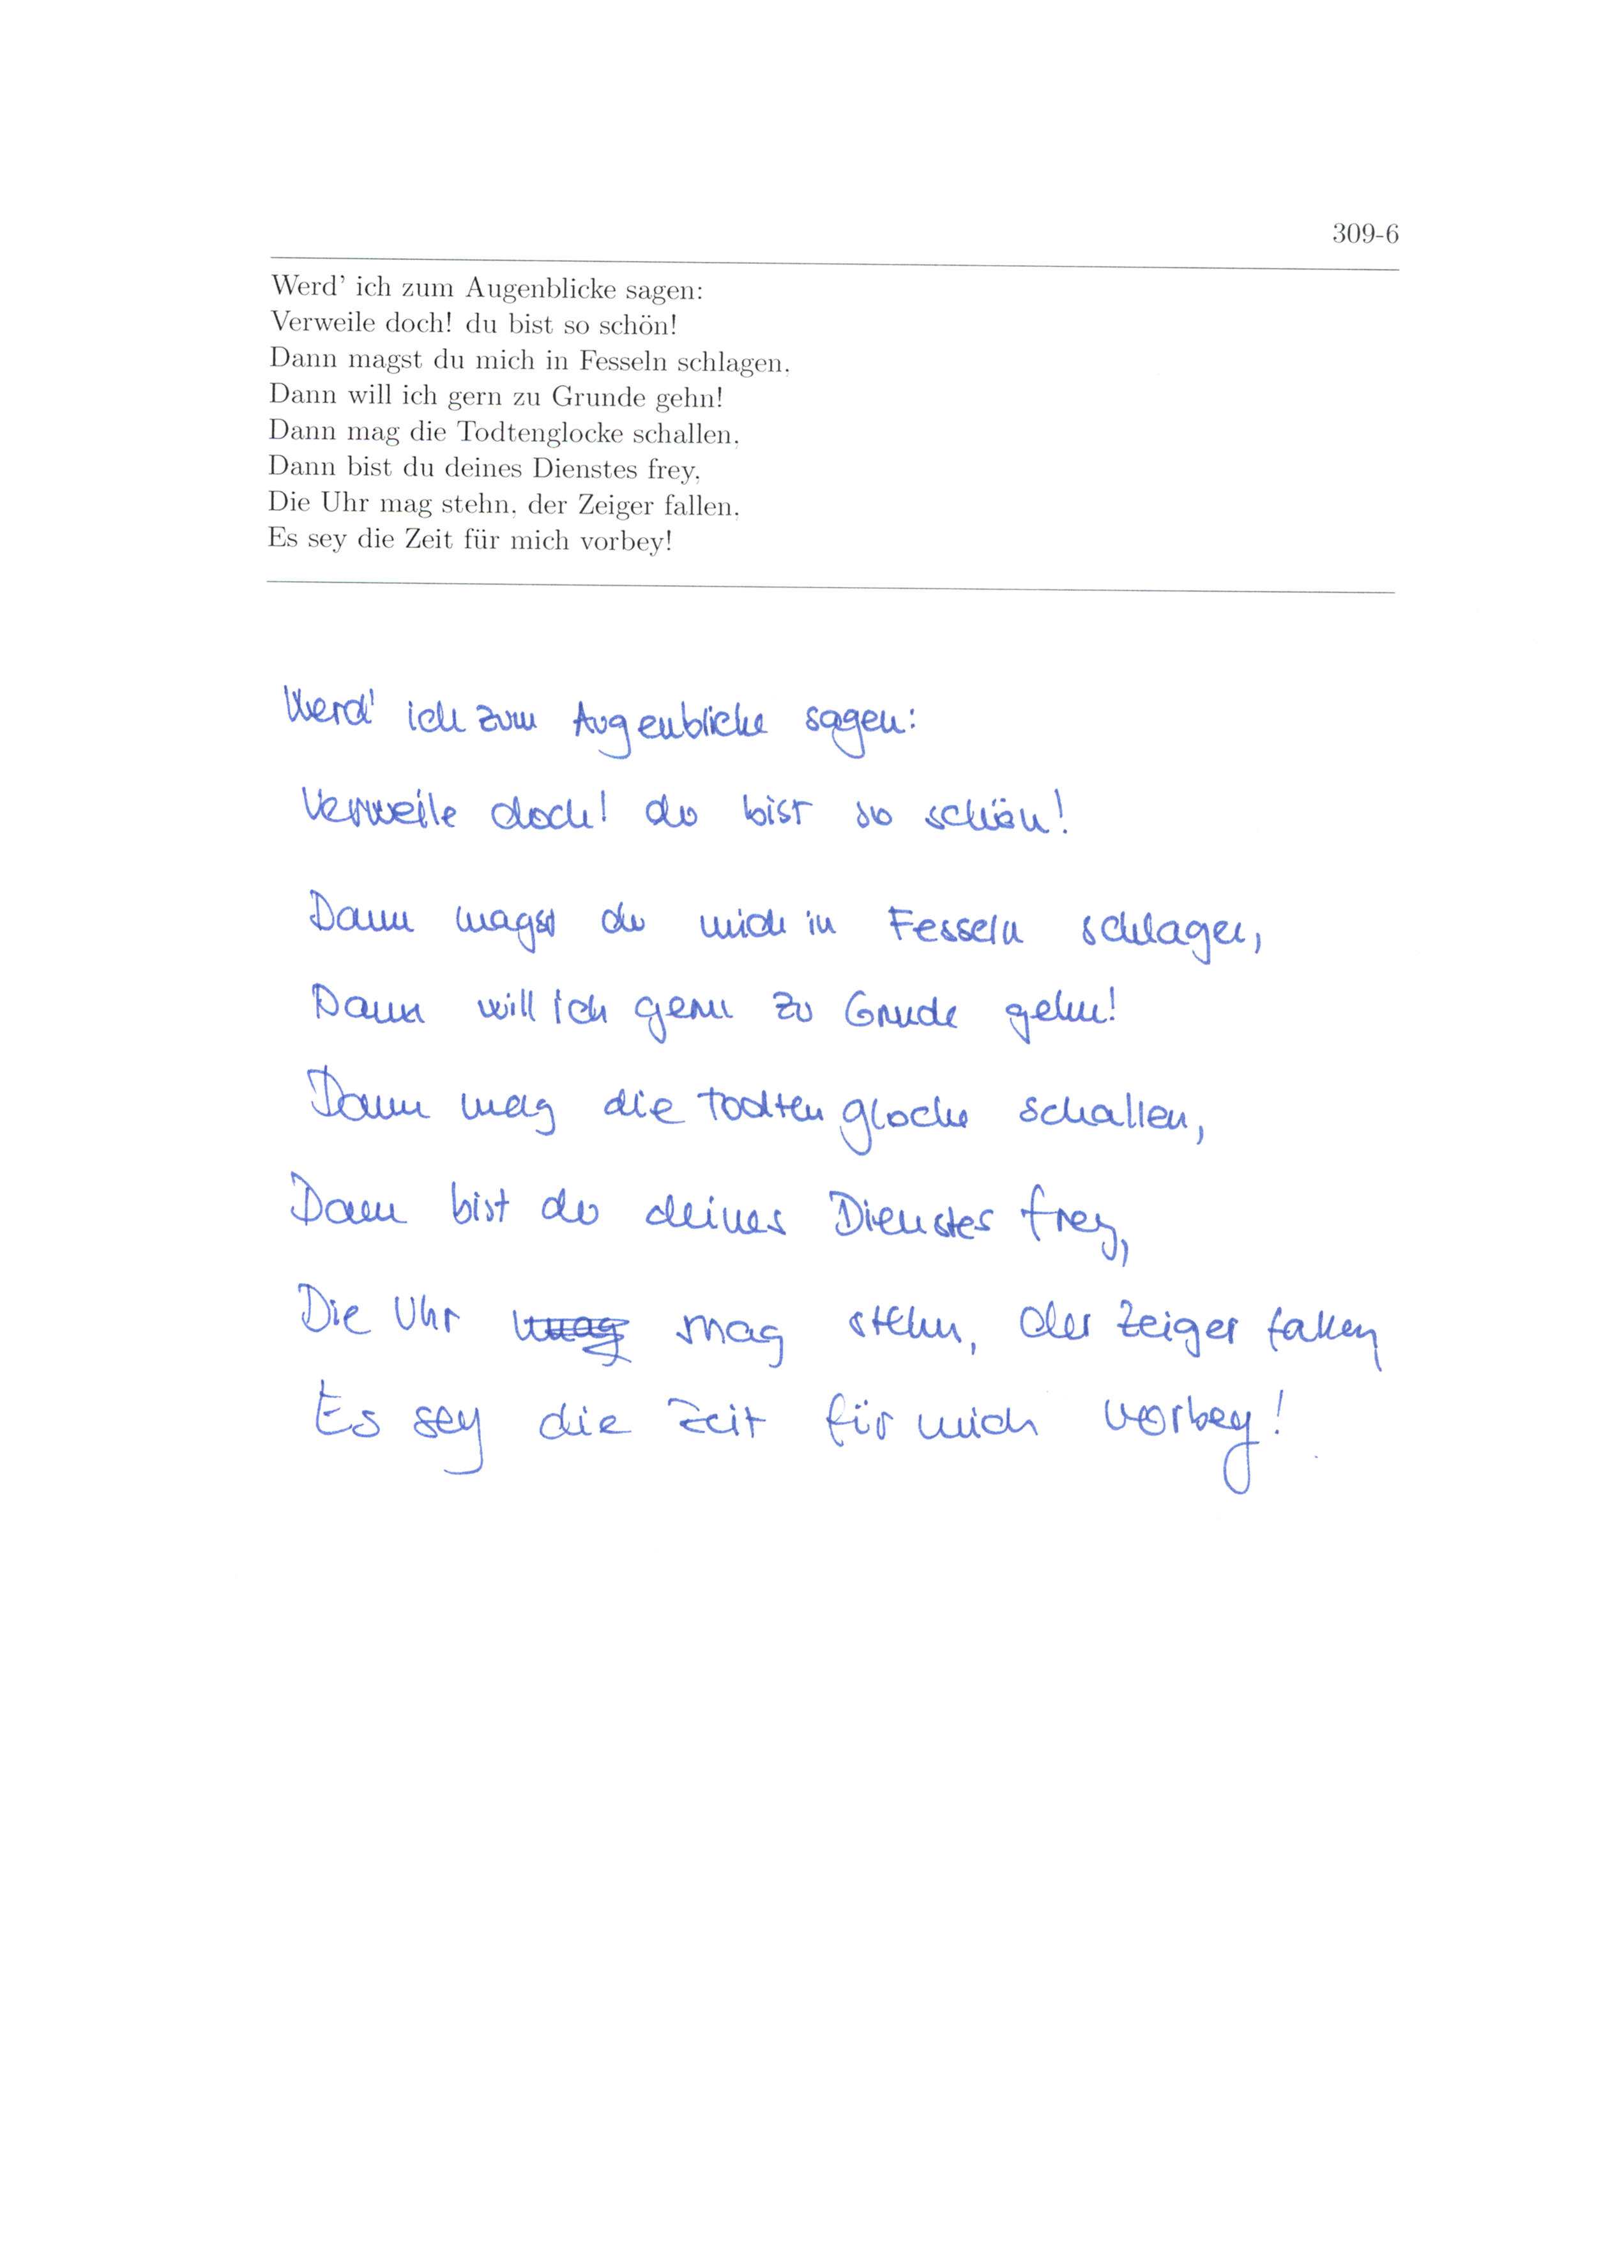 309-6
Werd' ich zum Augenblicke sagen:
Verweile doch! du bist so schön!
Dann magst du mich in Fesseln schlagen,
Dann will ich gern zu Grunde gehn!
Dann mag die Todtenglocke schallen,
Dann bist du deines Dienstes frey,
Die Uhr mag stehn, der Zeiger fallen,
Es sey die Zeit für mich vorbey!
Werd' ich zum Augenblicke sagen:
Verweile doch! du bist so schön!
Dann magst du mich in Fesseln schlagen,
Dann will ich gern zu Grude gehn!
Dann mag die Todtenglocke schallen,
Dann bist du deines Dienstes frey,
Die Uhr mag mag stehn, der Zeiger fallen,
Es sey die Zeit für mich vorbey!